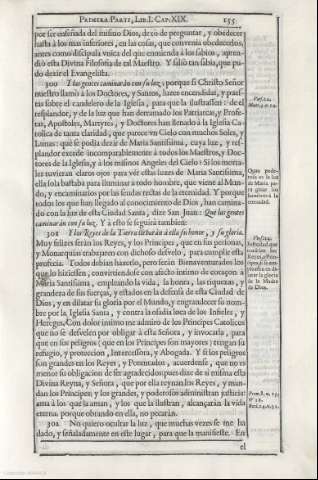 PRIMERA PARTE, LIB. I. CAP. XIX. 155
por ser enseñada del mismo Dios, dexò de preguntar, y obedecer
hasta à los mas inferiores, en las cosas, que convenia obedecerlos,
antes como discipula vnica del que enmienda à los sabios, apren-
diò esta Divina Filosofia de tal Maestro. Y saliò tan sabia, que pu-
do dezir el Evangelista.
300 Y las gentes caminaràn con su luz, porque si Christo Señor
nuestro llamò à los Doctores, y Santos, luzes encendidas, y pues-
tas sobre el candelero de la Iglesia, para que la ilustrassen: de el
resplandor, y de la luz que han derramado los Patriarcas, y Profe-
tas, Apostoles, Martyres, y Doctores han llenado à la Iglesia Ca-
tolica de tanta claridad, que parece vn Cielo con muchos Soles, y
Lunas: què se podia dezir de Maria Santissima, cuya luz, y res-
plandor excede incomparablemente à todos los Maestros, y Doc-
tores de la Iglesia, y à los mismos Angeles del Cielo? Si los morta-
les tuvieran claros ojos para vèr estas luzes de Maria Santissima,
ella sola bastaba para iluminar à todo hombre, que viene al Mun-
do, y encaminarlos por las sendas rectas de la eternidad. Y porque
todos los que han llegado al conocimiento de Dios, han camina-
do con la luz de esta Ciudad Santa, dize San Juan: Que las gentes
caminaràn con su luz. Y à esto se seguirà tambien:
301 Y los Reyes de la Tierra llevaràn à ella su honor, y su gloria.
Muy felizes seràn los Reyes, y los Principes, que en sus personas,
y Monarquias trabajaren con dichoso desvelo, para cumplir esta
profecia. Todos debian hazerlo, pero seràn Bienaventurados los
que lo hiziessen, convirtiendose con afecto intimo de corazon à
Maria Santissima, empleando la vida, la honra, las riquezas, y
grandeza de sus fuerças, y estados en la defensa de esta Ciudad de
Dios, y en dilatar su gloria por el Mundo, y engrandecer su nom-
bre por la Iglesia Santa, y contra la osadia loca de los Infieles, y
Hereges. Con dolor intimo me admiro de los Principes Catolicos
que no se desvelen por obligar à esta Señora, y invocarla, para
que en sus peligros (que en los Principes son mayores) tengan su
refugio, y proteccion, Intercessora, y Abogada. Y si los peligros
son grandes en los Reyes, y Potentados, acuerdense, que no es
menor su obligacion de ser agradecidos; pues dize de sì misma esta
Divina Reyna, y Señora, que por ella reynan los Reyes, y man-
dan los Principes; y los grandes, y poderosos administran justicia:
ama à los que la aman, y los que la ilustran, alcançaràn la vida
eterna: porque obrando en ella, no pecaràn.
302 No quiero ocultar la luz, que muchas vezes se me ha
dado, y señaladamente en este lugar, para que la manifieste. En
el
Matt. 5. v. 14.
de Dios.